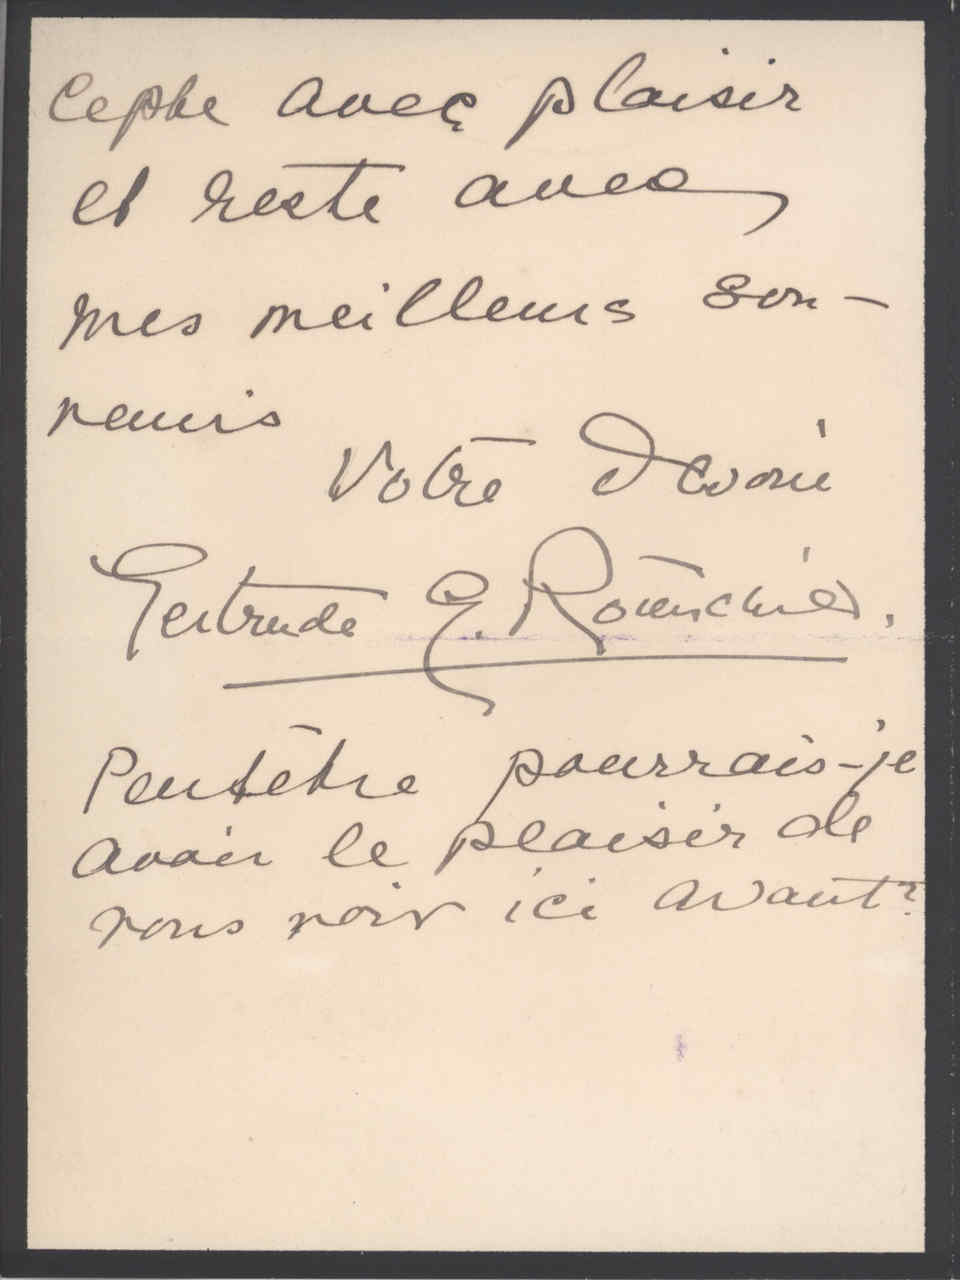 cepte avec plaisir
et reste avec
mes meilleurs sou-
venirs
Votre Devoué
Gertrude E.
Peutêtre pourrais-je
avoir le plaisir de
vous voir ici avant?